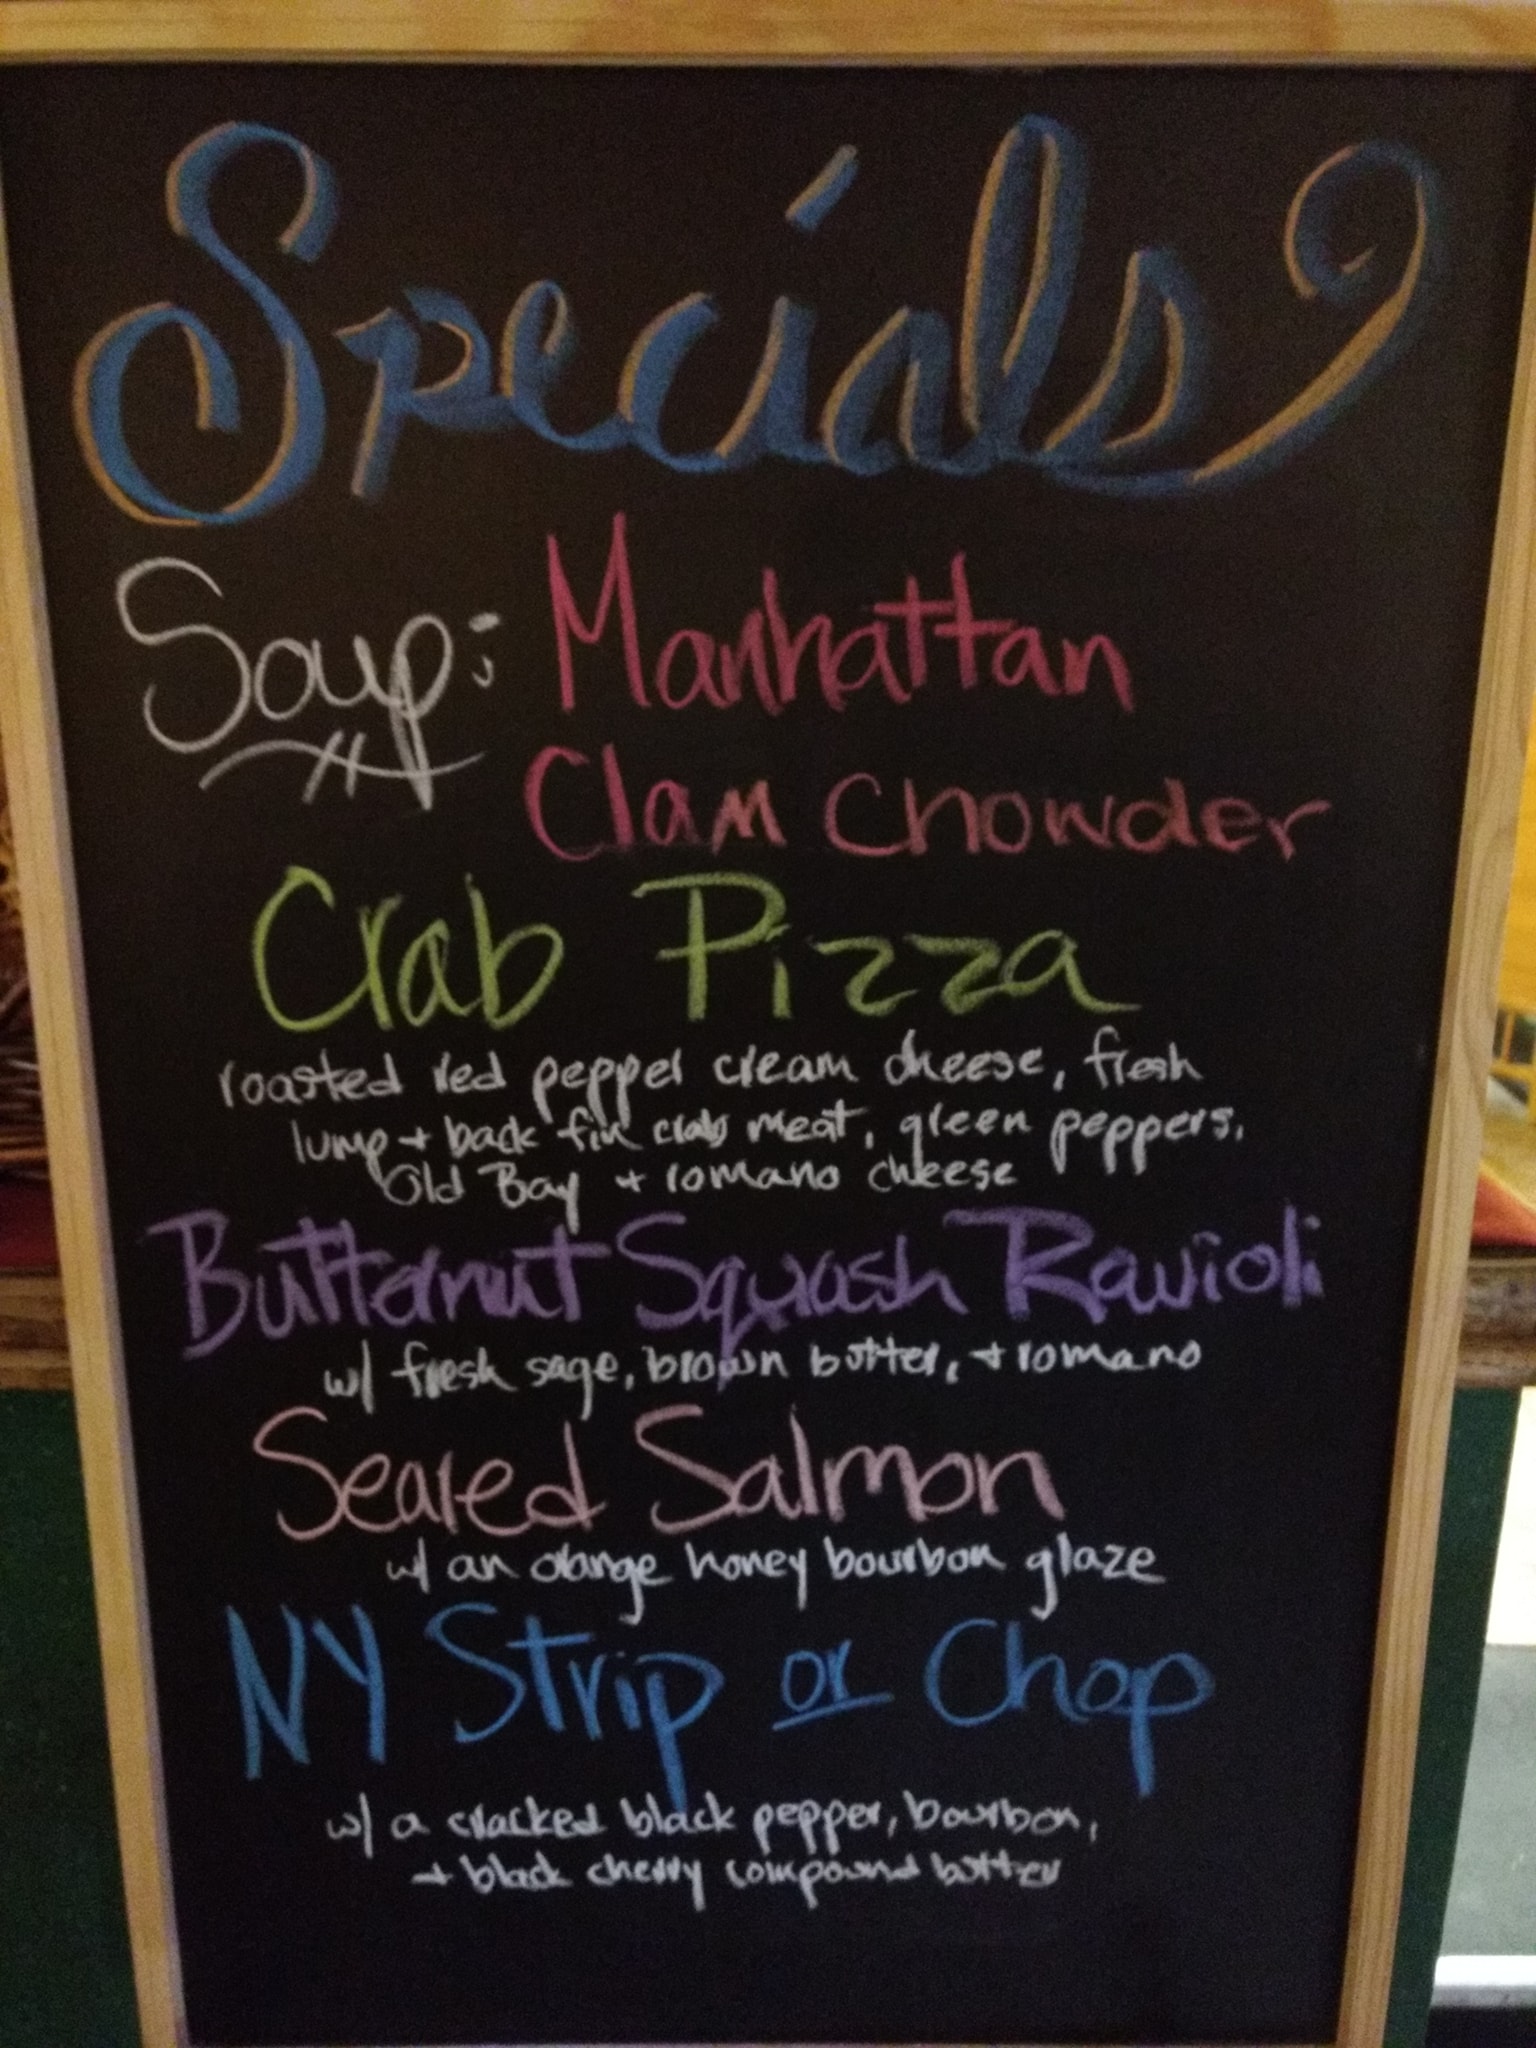 Specials
Soup: Manhattan
Clam Chowder
Crab Pizza
roasted red pepper cream cheese, fresh
lump + back fin crab meat, green peppers,
Old Bay + romano cheese
Butternut Squash Ravioli
w/ fresh sage, brown butter, + romano
Seared Salmon
w/ an orange honey bourbon glaze
NY Strip or Chop
w/ a cracked black pepper, bourbon,
+ black cherry compound butter